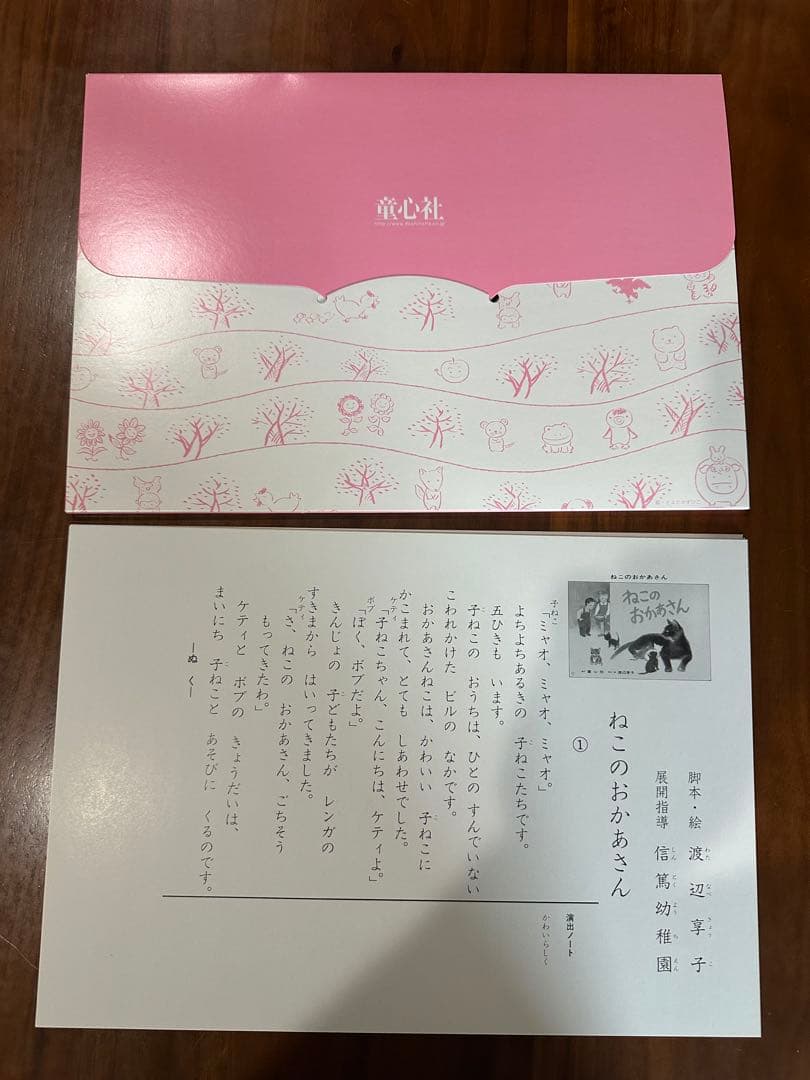 童心社
ねこのおかあさん
ねこの
おかあさん
脚本・絵 渡辺享子
わた なべ きょう こ
展開指導 信篤幼稚園
しん とく よう ち えん
ねこのおかあさん
①
子ねこ「ミャオ、ミャオ、ミャオ」
よちよちあるきの 子ねこたちです。
五ひきも います。
子ねこの おうちは、ひとの すんでいない
こわれかけた ビルの なかです。
おかあさんねこは、かわいい 子ねこに
かこまれて、とても しあわせでした。
ケティ「子ねこちゃん、こんにちは、ケティよ」
ボブ「ぼく、ボブだよ。」
きんじょの 子どもたちが レンガの
すきまから はいってきました。
ケティ「さ、ねこの おかあさん、ごちそう
もってきたわ。」
ケティと ボブの きょうだいは、
まいにち 子ねこと あそびに くるのです。
―ぬ く―
演出ノート
かわいらしく